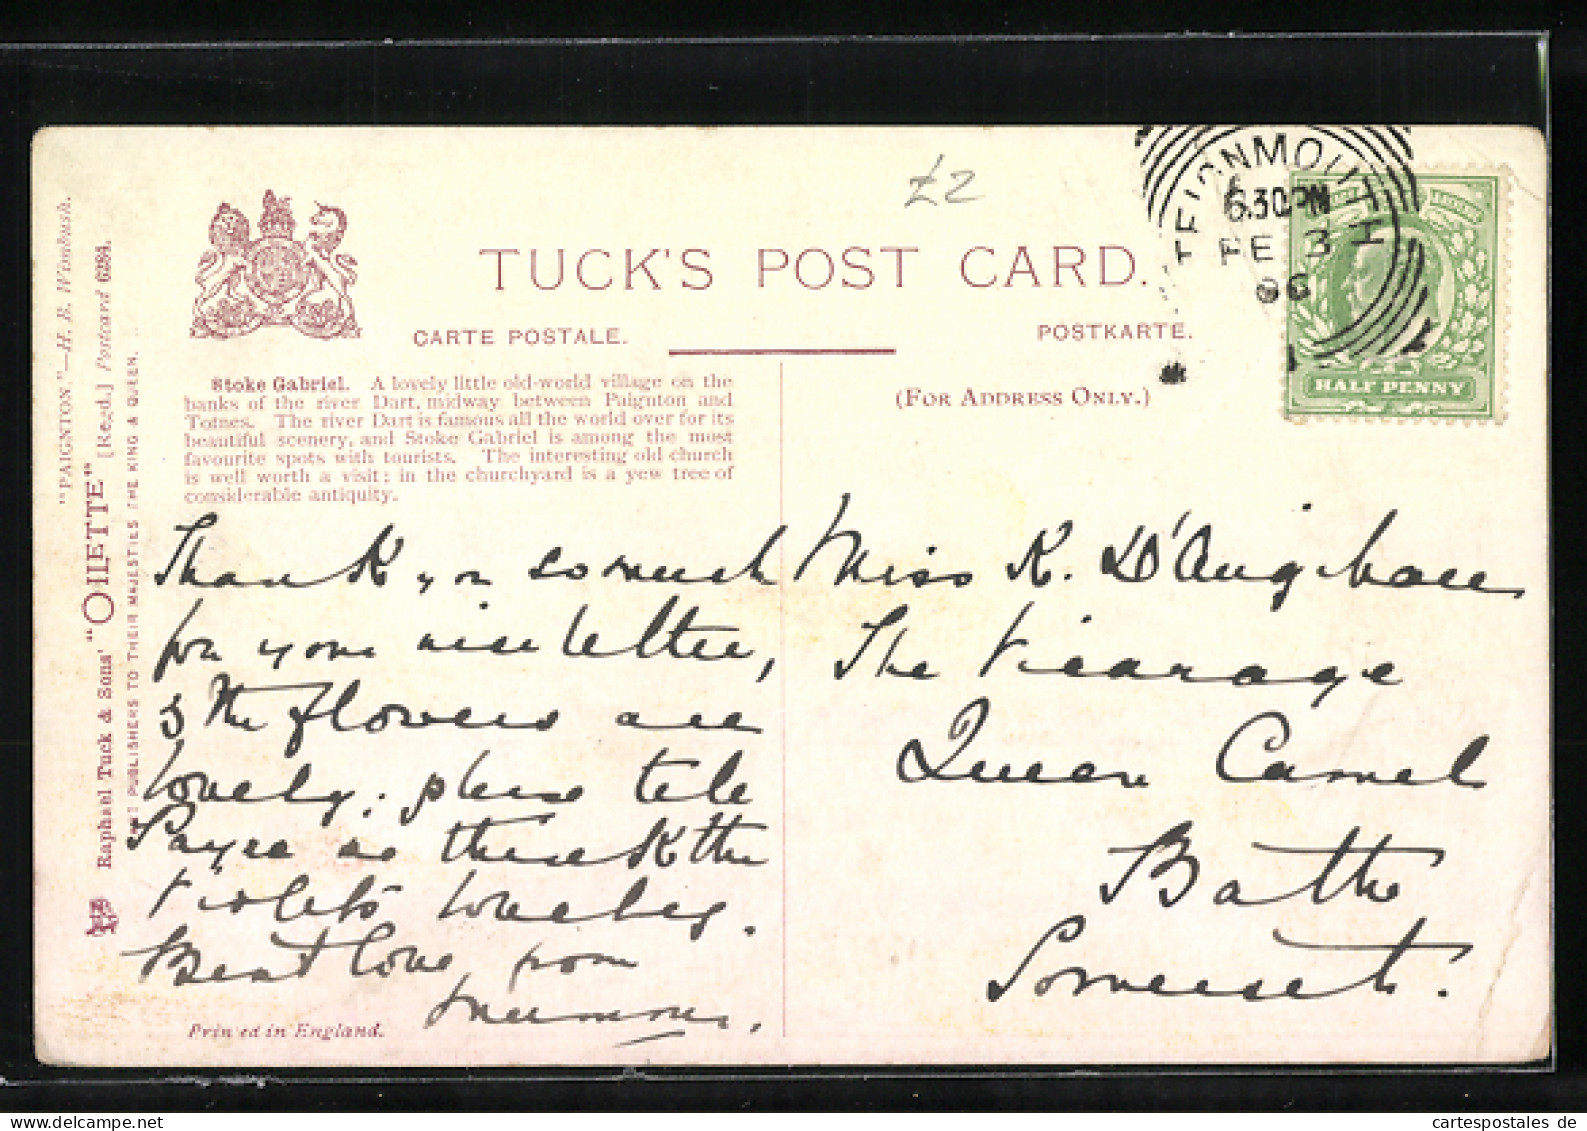 £2
TEIGNMOUTH
6.30PM
FE 3
06
HALF PENNY
TUCK'S POST CARD.
CARTE POSTALE.
POSTKARTE.
(FOR ADDRESS ONLY.)
"PAIGNTON."—H. B. Wimbush.
Raphael Tuck & Sons' "OILETTE" [Regd.] Postcard 6284.
PUBLISHERS TO THEIR MAJESTIES THE KING & QUEEN.
Stoke Gabriel. A lovely little old-world village on the
banks of the river Dart, midway between Paignton and
Totnes. The river Dart is famous all the world over for its
beautiful scenery, and Stoke Gabriel is among the most
favourite spots with tourists. The interesting old church
is well worth a visit; in the churchyard is a yew tree of
considerable antiquity.
Thank you so much
for your nice letter,
& the flowers are
lovely; please tell
as these & the
violets lovely.
Best love from
Mummy.
Printed in England.
Miss K. D'Aug
The Vicarage
Queen Camel
Bath
Somerset.
www.cartespostales.de